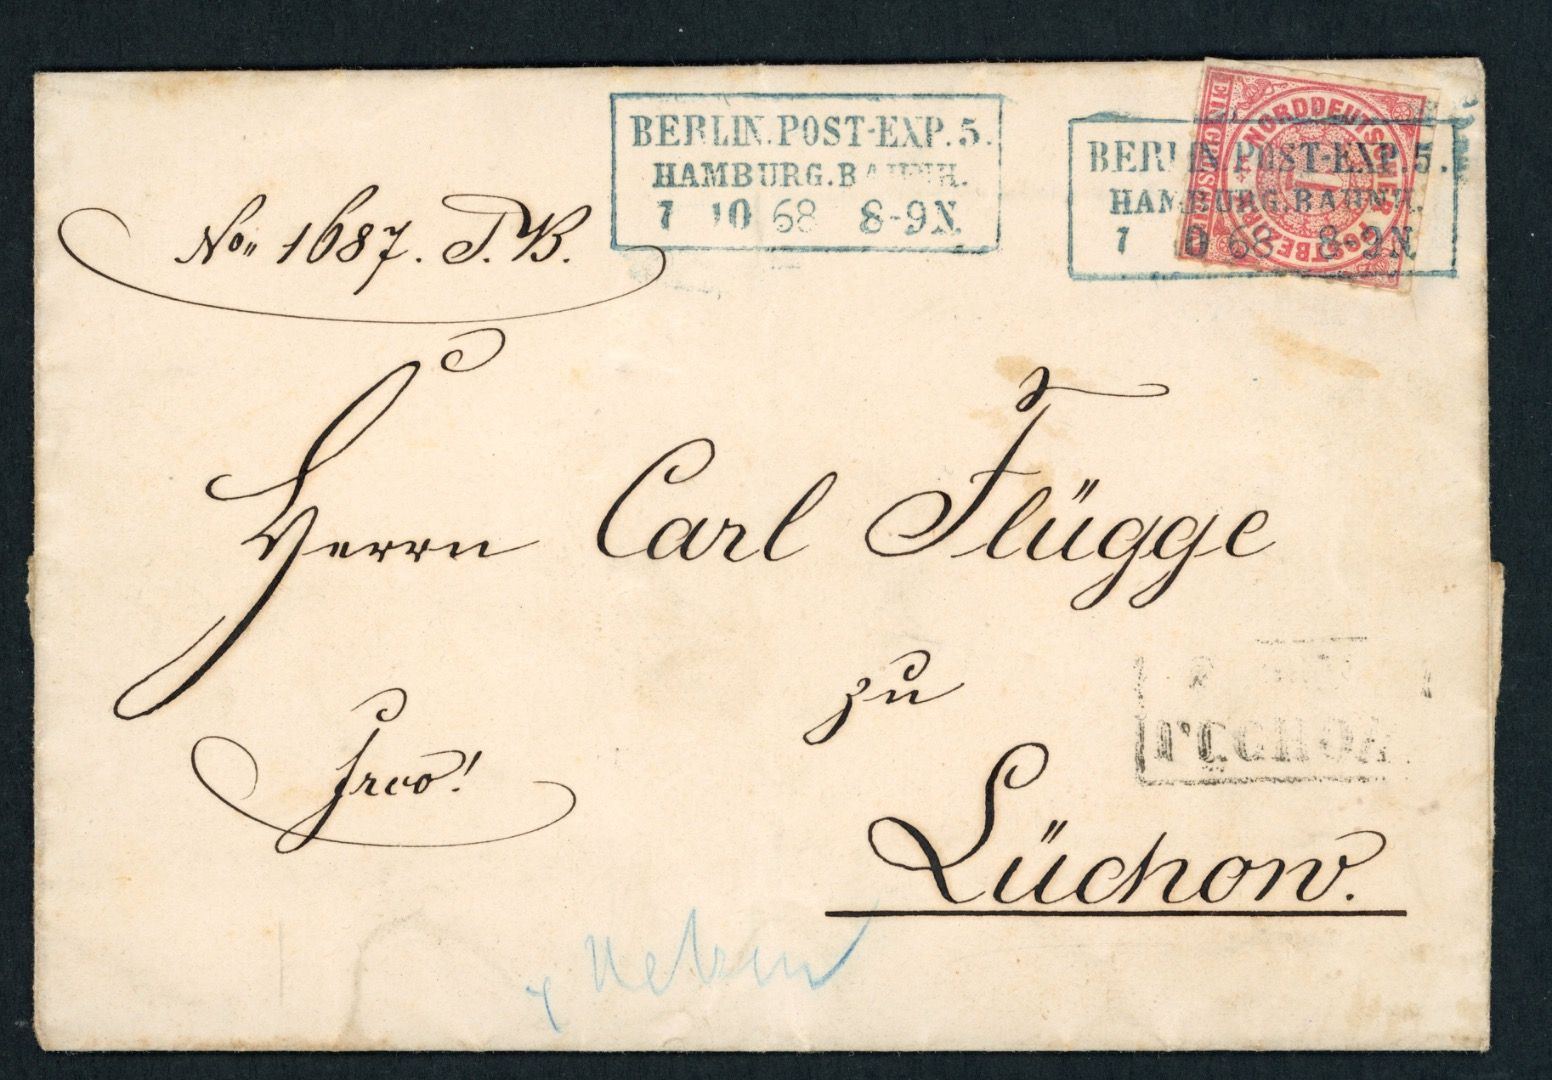 BERLIN.POST-EXP.5.
HAMBURG.BAHNH.
7 10 68 8-9N.
NORDDEUTSCHER POSTBEZIRK
EIN GROSCHEN
1
BERLIN.POST-EXP.5.
HAMBURG.BAHNH.
7 10 68 8-9N
No. 1687. T.B.
Herrn Carl Flügge
zu
Frco!
LUCHOW
Lüchow.